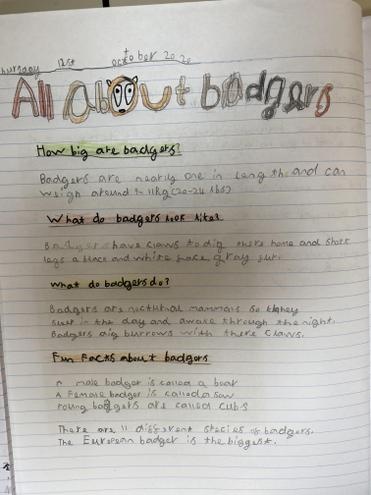 Thursday 12st October 2020
All about badgers
How big are badgers?
Badgers are nearly one in length and can
weigh around 11kg (20-24 lbs)
What do badgers look like?
Badgers have claws to dig there home and short
legs a black and white face, gray fur.
What do badgers do?
Badgers are noctunal mammals so they
in the day and awake through the night.
Badgers dig burrows with there claws.
Fun facts about badgers
A male badger is called a boar
A Female badger is called a sow
Young badgers are called cubs
There are 11 different species of badgers.
The European badger is the biggest.